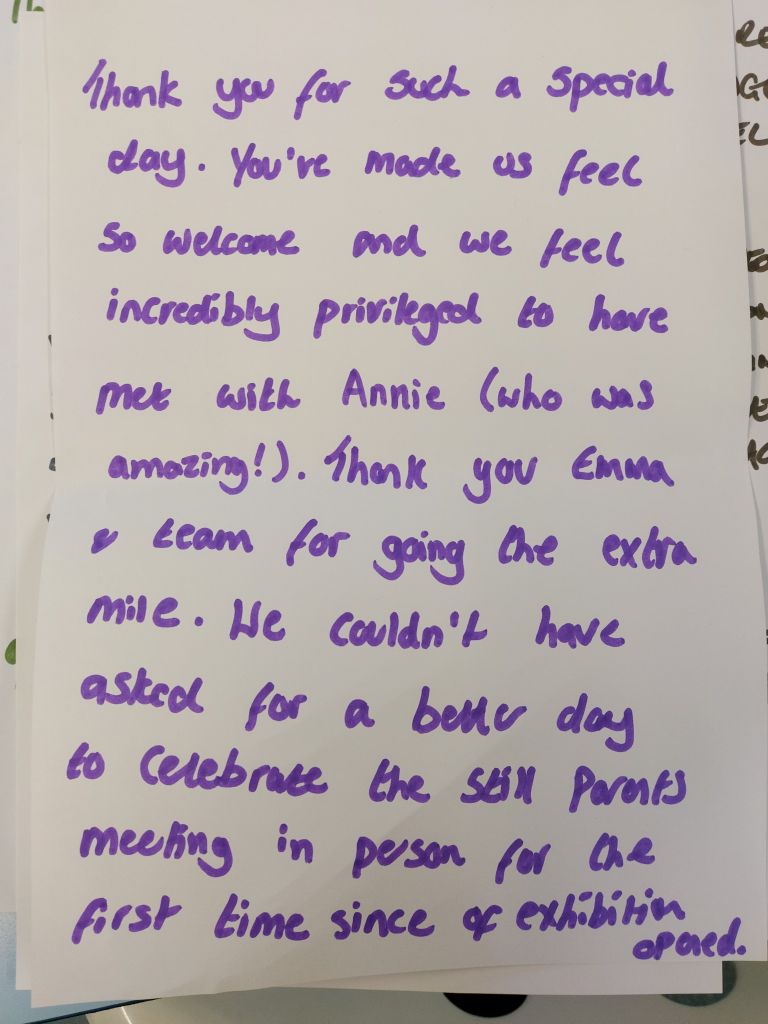 Thank you for such a special
day. You've made us feel
so welcome and we feel
incredibly privileged to have
met with Annie (who was
amazing!). Thank you Emma
& team for going the extra
mile. We couldn't have
asked for a better day
to celebrate the Still Parents
meeting in person for the
first time since of exhibition
opened.